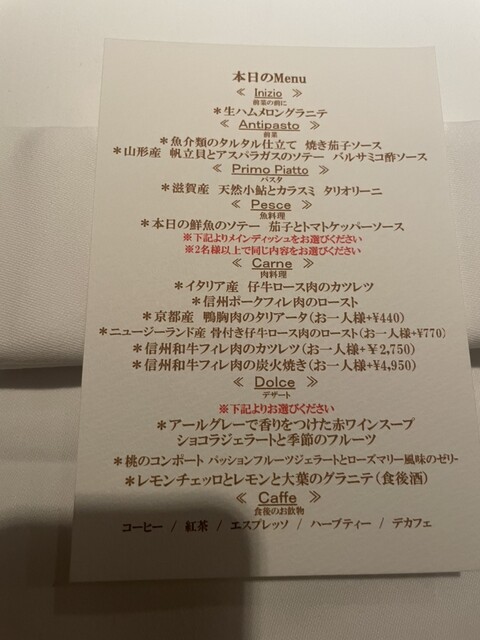 本日のMenu
≪ Inizio ≫
前菜の前に
＊生ハムメロングラニテ
≪ Antipasto ≫
前菜
＊魚介類のタルタル仕立て 焼き茄子ソース
＊山形産 帆立貝とアスパラガスのソテー バルサミコ酢ソース
≪ Primo Piatto ≫
パスタ
＊滋賀産 天然小鮎とカラスミ タリオリーニ
≪ Pesce ≫
魚料理
＊本日の鮮魚のソテー 茄子とトマトケッパーソース
※下記よりメインディッシュをお選びください
※2名様以上で同じ内容をお選びください
≪ Carne ≫
肉料理
＊イタリア産 仔牛ロース肉のカツレツ
＊信州ポークフィレ肉のロースト
＊京都産 鴨胸肉のタリアータ(お一人様+¥440)
＊ニュージーランド産 骨付き仔牛ロース肉のロースト(お一人様+¥770)
＊信州和牛フィレ肉のカツレツ(お一人様+¥2,750)
＊信州和牛フィレ肉の炭火焼き(お一人様+¥4,950)
≪ Dolce ≫
デザート
※下記よりお選びください
＊アールグレーで香りをつけた赤ワインスープ
ショコラジェラートと季節のフルーツ
＊桃のコンポート パッションフルーツジェラートとローズマリー風味のゼリー
＊レモンチェッロとレモンと大葉のグラニテ(食後酒)
≪ Caffe ≫
食後のお飲物
コーヒー / 紅茶 / エスプレッソ / ハーブティー / デカフェ